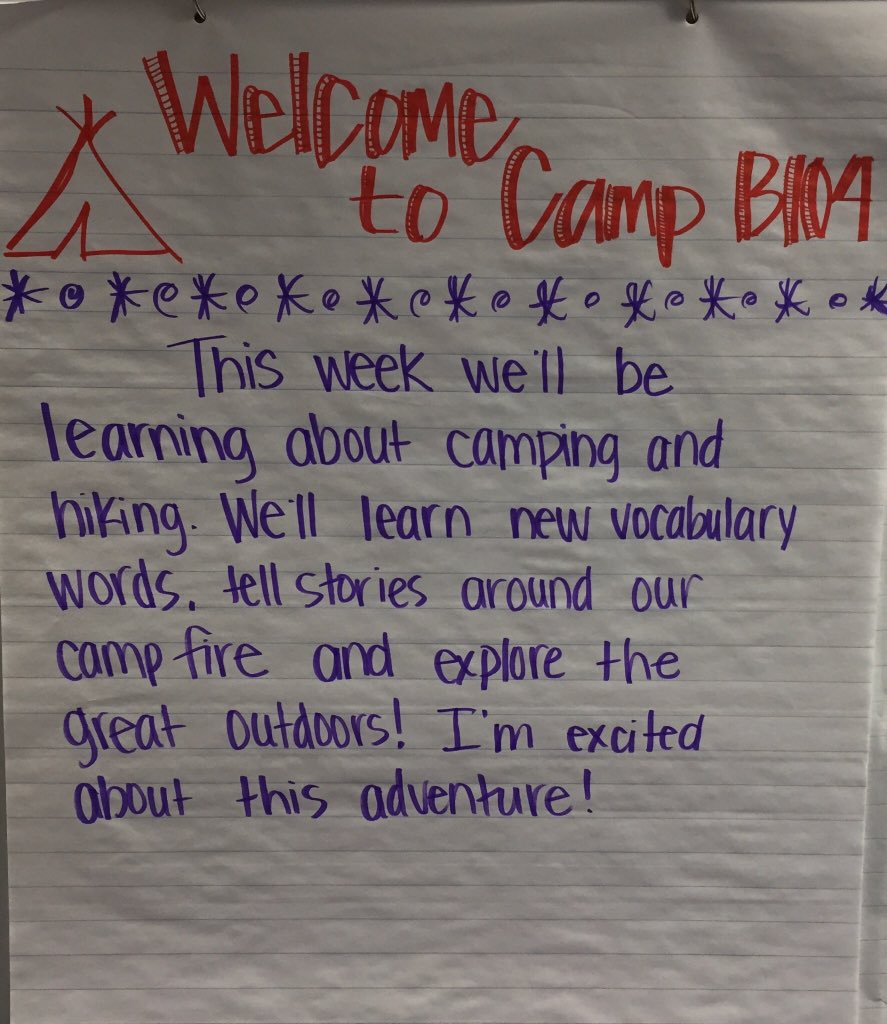 Welcome
to Camp B104
This week we'll be
learning about camping and
hiking. We'll learn new vocabulary
words, tell stories around our
camp fire and explore the
great outdoors! I'm excited
about this adventure!